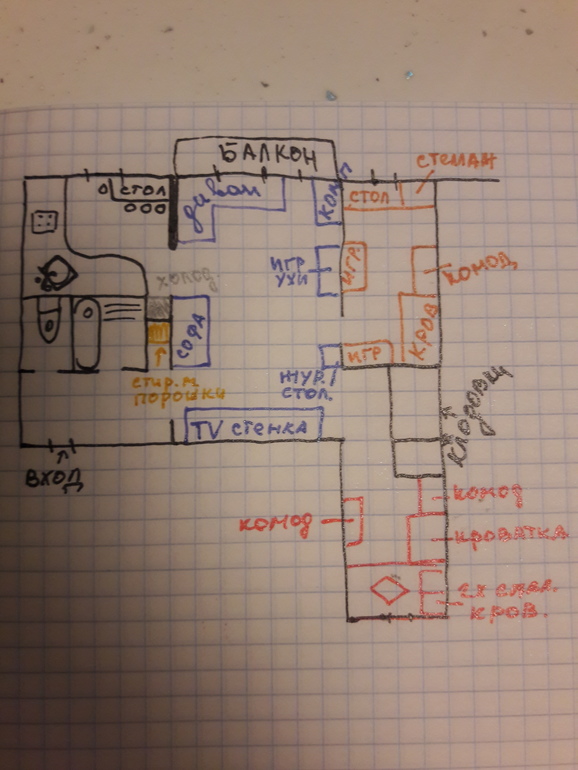 БАЛКОН
СТЕЛАЖ
СТОЛ
диван
КОМП
СТОЛ
ИГР
УХИ
ИГР.
КОМОД
холод.
СОФА
КРОВ
ИГР
ЖУР.
СТОЛ.
стир. м
порошки
TV СТЕНКА
Кладовки
ВХОД
КОМОД
КОМОД
КРОВАТКА
КРОВ.